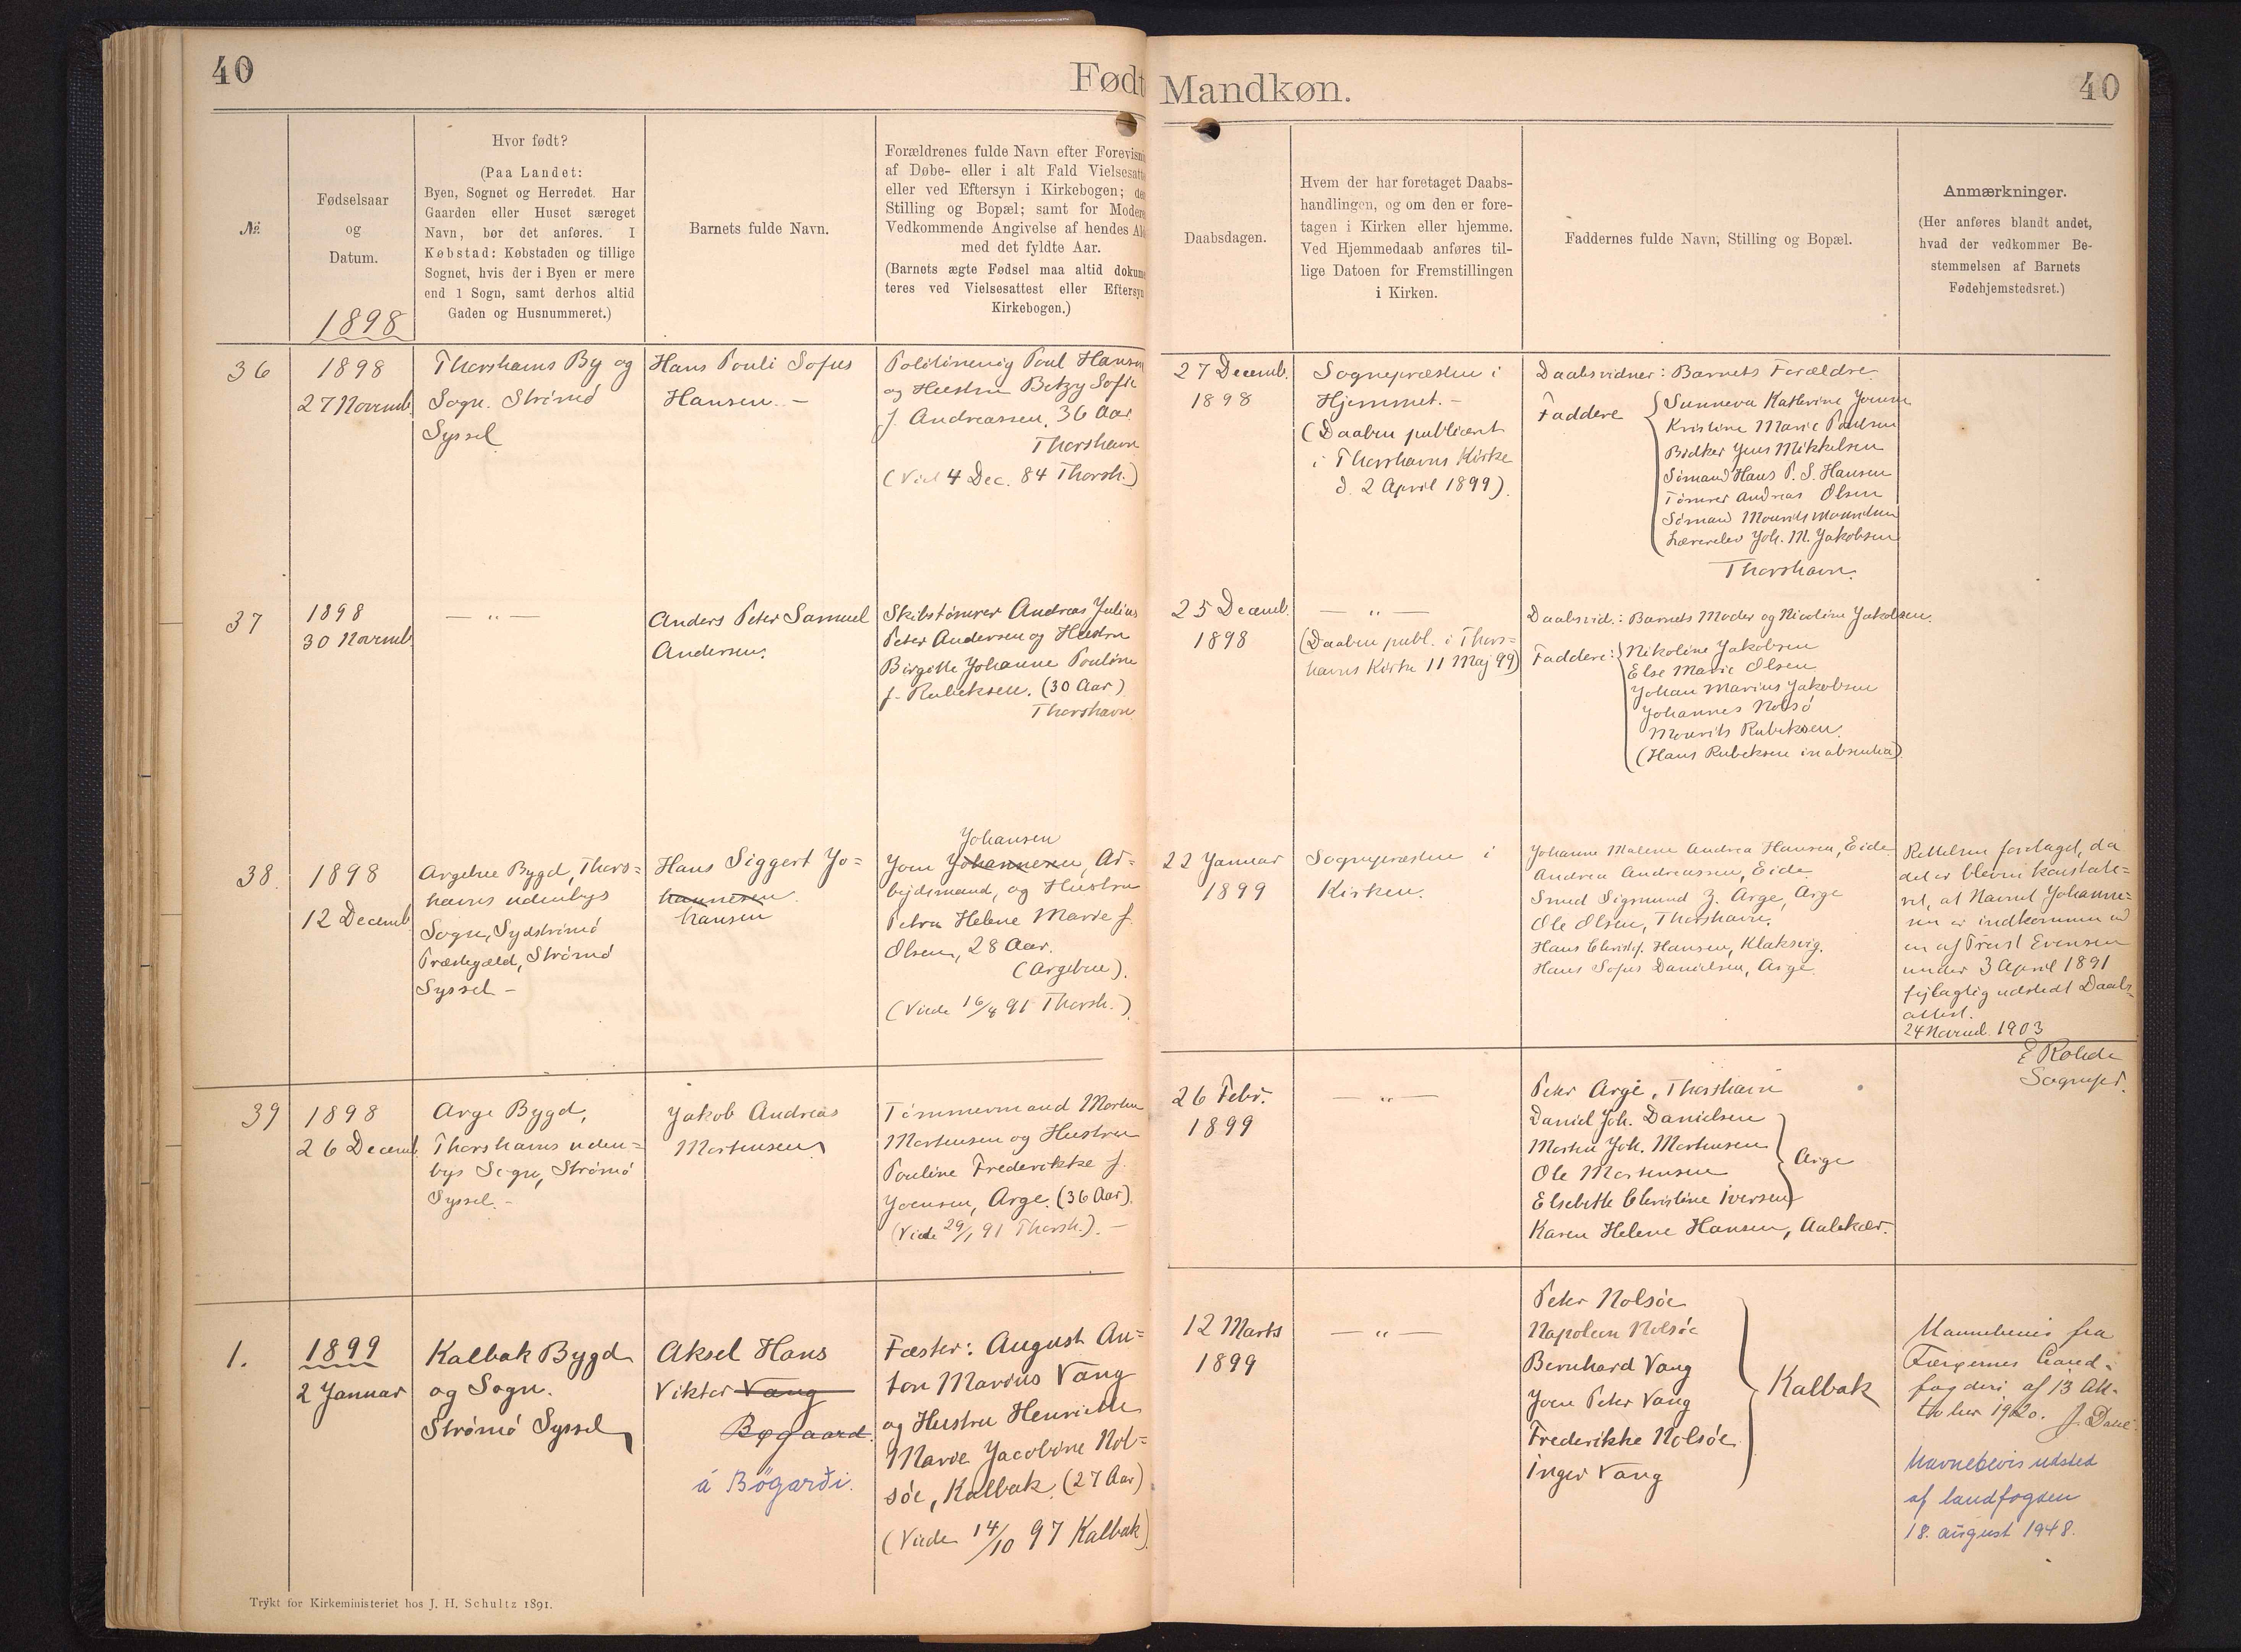 40
Født
Mandkøn.
40
№
Fødselsaar
og
Datum.
1898
Hvor født?
(Paa Landet:
Byen, Sognet og Herredet. Har
Gaarden eller Huset særeget
Navn, bør det anføres. I
Købstad: Købstaden og tillige
Sognet, hvis der i Byen er mere
end 1 Sogn, samt derhos altid
Gaden og Husnummeret.)
Barnets fulde Navn.
Forældrenes fulde Navn efter Forevisni
af Døbe- eller i alt Fald Vielsesatte
eller ved Eftersyn i Kirkebogen; de
Stilling og Bopæl; samt for Moder
Vedkommende Angivelse af hendes Al
med det fyldte Aar.
(Barnets ægte Fødsel maa altid dokum
teres ved Vielsesattest eller Eftersyn
Kirkebogen.)
Daabsdagen.
Hvem der har foretaget Daabs-
handlingen, og om den er fore-
tagen i Kirken eller hjemme.
Ved Hjemmedaab anføres til-
lige Datoen for Fremstillingen
i Kirken.
Faddernes fulde Navn, Stilling og Bopæl.
Anmærkninger.
(Her anføres blandt andet,
hvad der vedkommer Be-
stemmelsen af Barnets
Fødehjemstedsret.)
36
1898
27 Novemb.
Thorshavns By og
Sogn. Strømø
Syssel
Hans Pouli Sofus
Hansen. -
Poul Hansen
og Hustru Betzy Sofie
f. Andreassen, 36 Aar
Thorshavn
(Vied 4 Dec. 84 Thorsh.)
27 Decemb.
1898
Sognepræsten i
Hjemmet. -
(Daaben publiceret
i Thorshavns Kirke
d. 2 April 1899).
Daabsvidner: Barnets Forældre.
Faddere
Sunneva Kathrine Joensen
Kristine Marie Poulsen
Bødker Jens Mikkelsen
Sømand Hans P. S. Hansen
Tømrer Andreas Olsen
Sømand Mourits Mouritsen
Lærerelev Joh. M. Jakobsen
Thorshavn.
37
1898
30 Novemb.
— " —
Anders Peter Samuel
Andersen.
Skibstømrer Andreas Julius
Peter Andersen og Hustru
Birgitte Johanne Pouline
f. Rubeksen. (30 Aar)
Thorshavn
25 Decemb.
1898
— " —
(Daaben publ. i Thors=
havns Kirke 11 Maj 99)
Daabsvid.: Barnets Moder og Nicoline Jakobsen.
Faddere:
Nikoline Jakobsen
Else Marie Olsen
Johan Marius Jakobsen
Johannes Nolsø
Mourits Rubeksen.
(Hans Rubeksen in absentia)
38.
1898
12 Decemb.
Argebue Bygd, Thors=
havns udenbys
Sogn, Sydstrømø
Præstegæld, Strømø
Syssel -
Hans Siggert Jo=
hannesen.
hansen
Johansen
Joen Johannesen, Ar=
bejdsmand, og Hustru
Petra Helene Marie f.
Olsen, 28 Aar.
(Argebue).
(Viede 16/8 91 Thorsh.).
22 Januar
1899
Sognepræsten i
Kirken.
Johanne Malene Andrea Hansen, Eide
Andrea Andreassen, Eide.
Smed Sigmund Z. Arge, Arge
Ole Olsen, Thorshavn.
Hans Christof. Hansen, Klaksvig.
Hans Sofus Danielsen, Arge
Rettelsen foretaget, da
det er bleven konstate=
ret, at Navnet Johanne=
sen er indkommen ved
en af Prvst Evensen
under 3 April 1891
fejlagtig udstedt Daabs=
attest.
24 Novemb. 1903
E Rohde
Sognepr.
39
1898
26 Decemb.
Arge Bygd,
Thorshavns uden=
bys Sogn, Strømø
Syssel. -
Jakob Andreas
Mortensen
Tømmermand Morten
Mortensen og Hustru
Pouline Frederikke f.
Joensen, Arge. (36 Aar).
(Viede 29/1 91 Thorsh.). -
26 Febr.
1899
— " —
Peter Arge, Thorshavn
Daniel Joh. Danielsen
Morten Joh. Mortensen
Ole Mortensen
Elsebeth Christine Iversen
Arge
Karen Helene Hansen, Aalekær.
1.
1899
2 Januar
Kalbak Bygd
og Sogn.
Strømø Syssel
Aksel Hans
Viktor Vang
Bøgaard.
á Bøgarði.
Fæster: August An=
ton Marius Vang
og Hustru Henriette
Marie Jacobine Nol=
søe, Kalbak. (27 Aar)
(Viede 14/10 97 Kalbak)
12 Marts
1899
— " —
Peter Nolsøe
Napoleon Nolsøe
Bernhard Vang
Joen Peter Vang
Frederikke Nolsøe
Inger Vang
Kalbak
Navnebevis fra
Færøernes Land-
fogderi af 13 Ok-
tober 1920. J. Dahl
Navnebevis udsted
af landfogden
18. august 1948.
Trykt for Kirkeministeriet hos J. H. Schultz 1891.